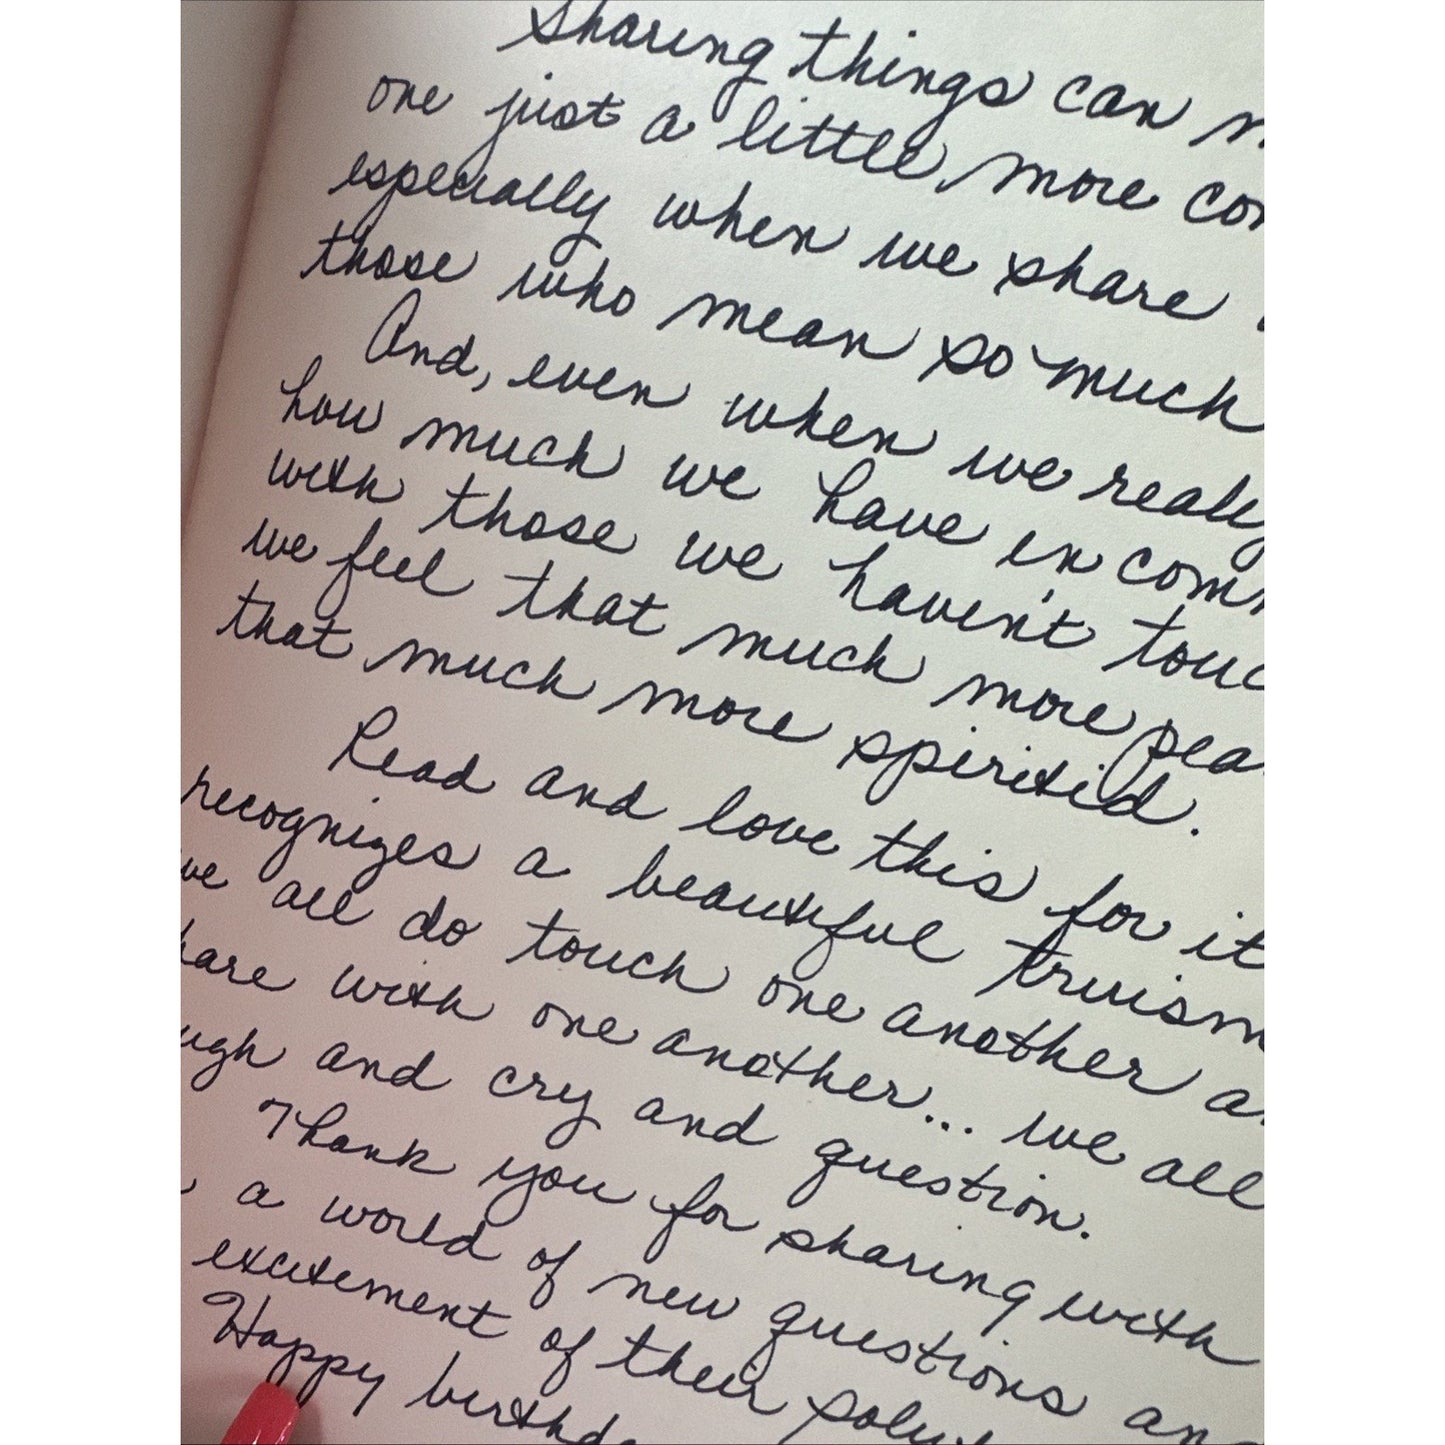 Sharing things can
one just a little more
especially when we share
those who mean so much
And, even when we really
how much we have in
with those we haven't
we feel that much more
that much more spirited.
Read and love this for it
recognizes a beautiful truism
we all do touch one another
with one another... we all
and cry and question.
Thank you for sharing with
a world of new questions
excitement of their
Happy